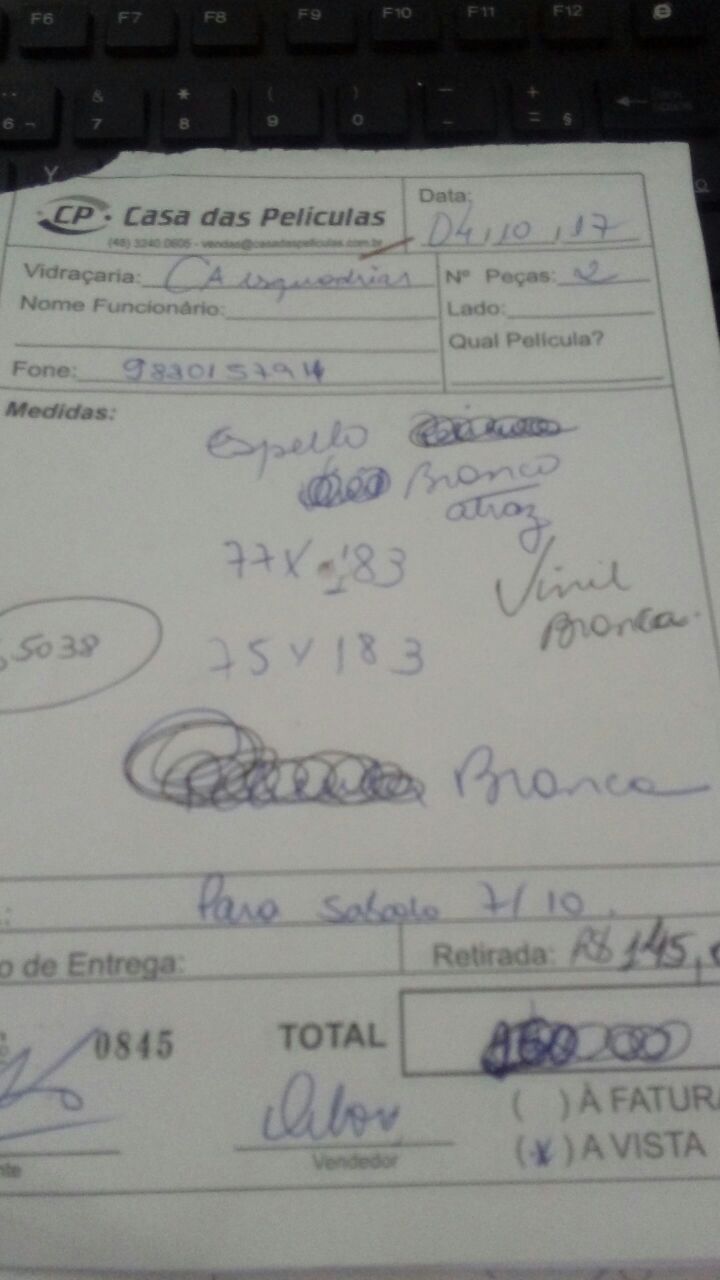 F6 F7 F8 F9 F10 F11 F12
6 ¬ & 7 * 8 ( 9 ) 0 _ - + = §
Y
CP Casa das Películas
(48) 3240.0605 - vendas@casadaspeliculas.com.br
Data: 04, 10, 17
Vidraçaria: CA esquadrias
Nº Peças: 2
Nome Funcionário:
Lado:
Qual Película?
Fone:
Medidas:
Espello
Branco
atraz
77 X 183
Vinil
Branca.
5038
75 X 183
Branca
Para sabado 7/10.
o de Entrega:
Retirada: R$ 145,
0845
TOTAL
( ) À FATURA
(x) A VISTA
Vendedor